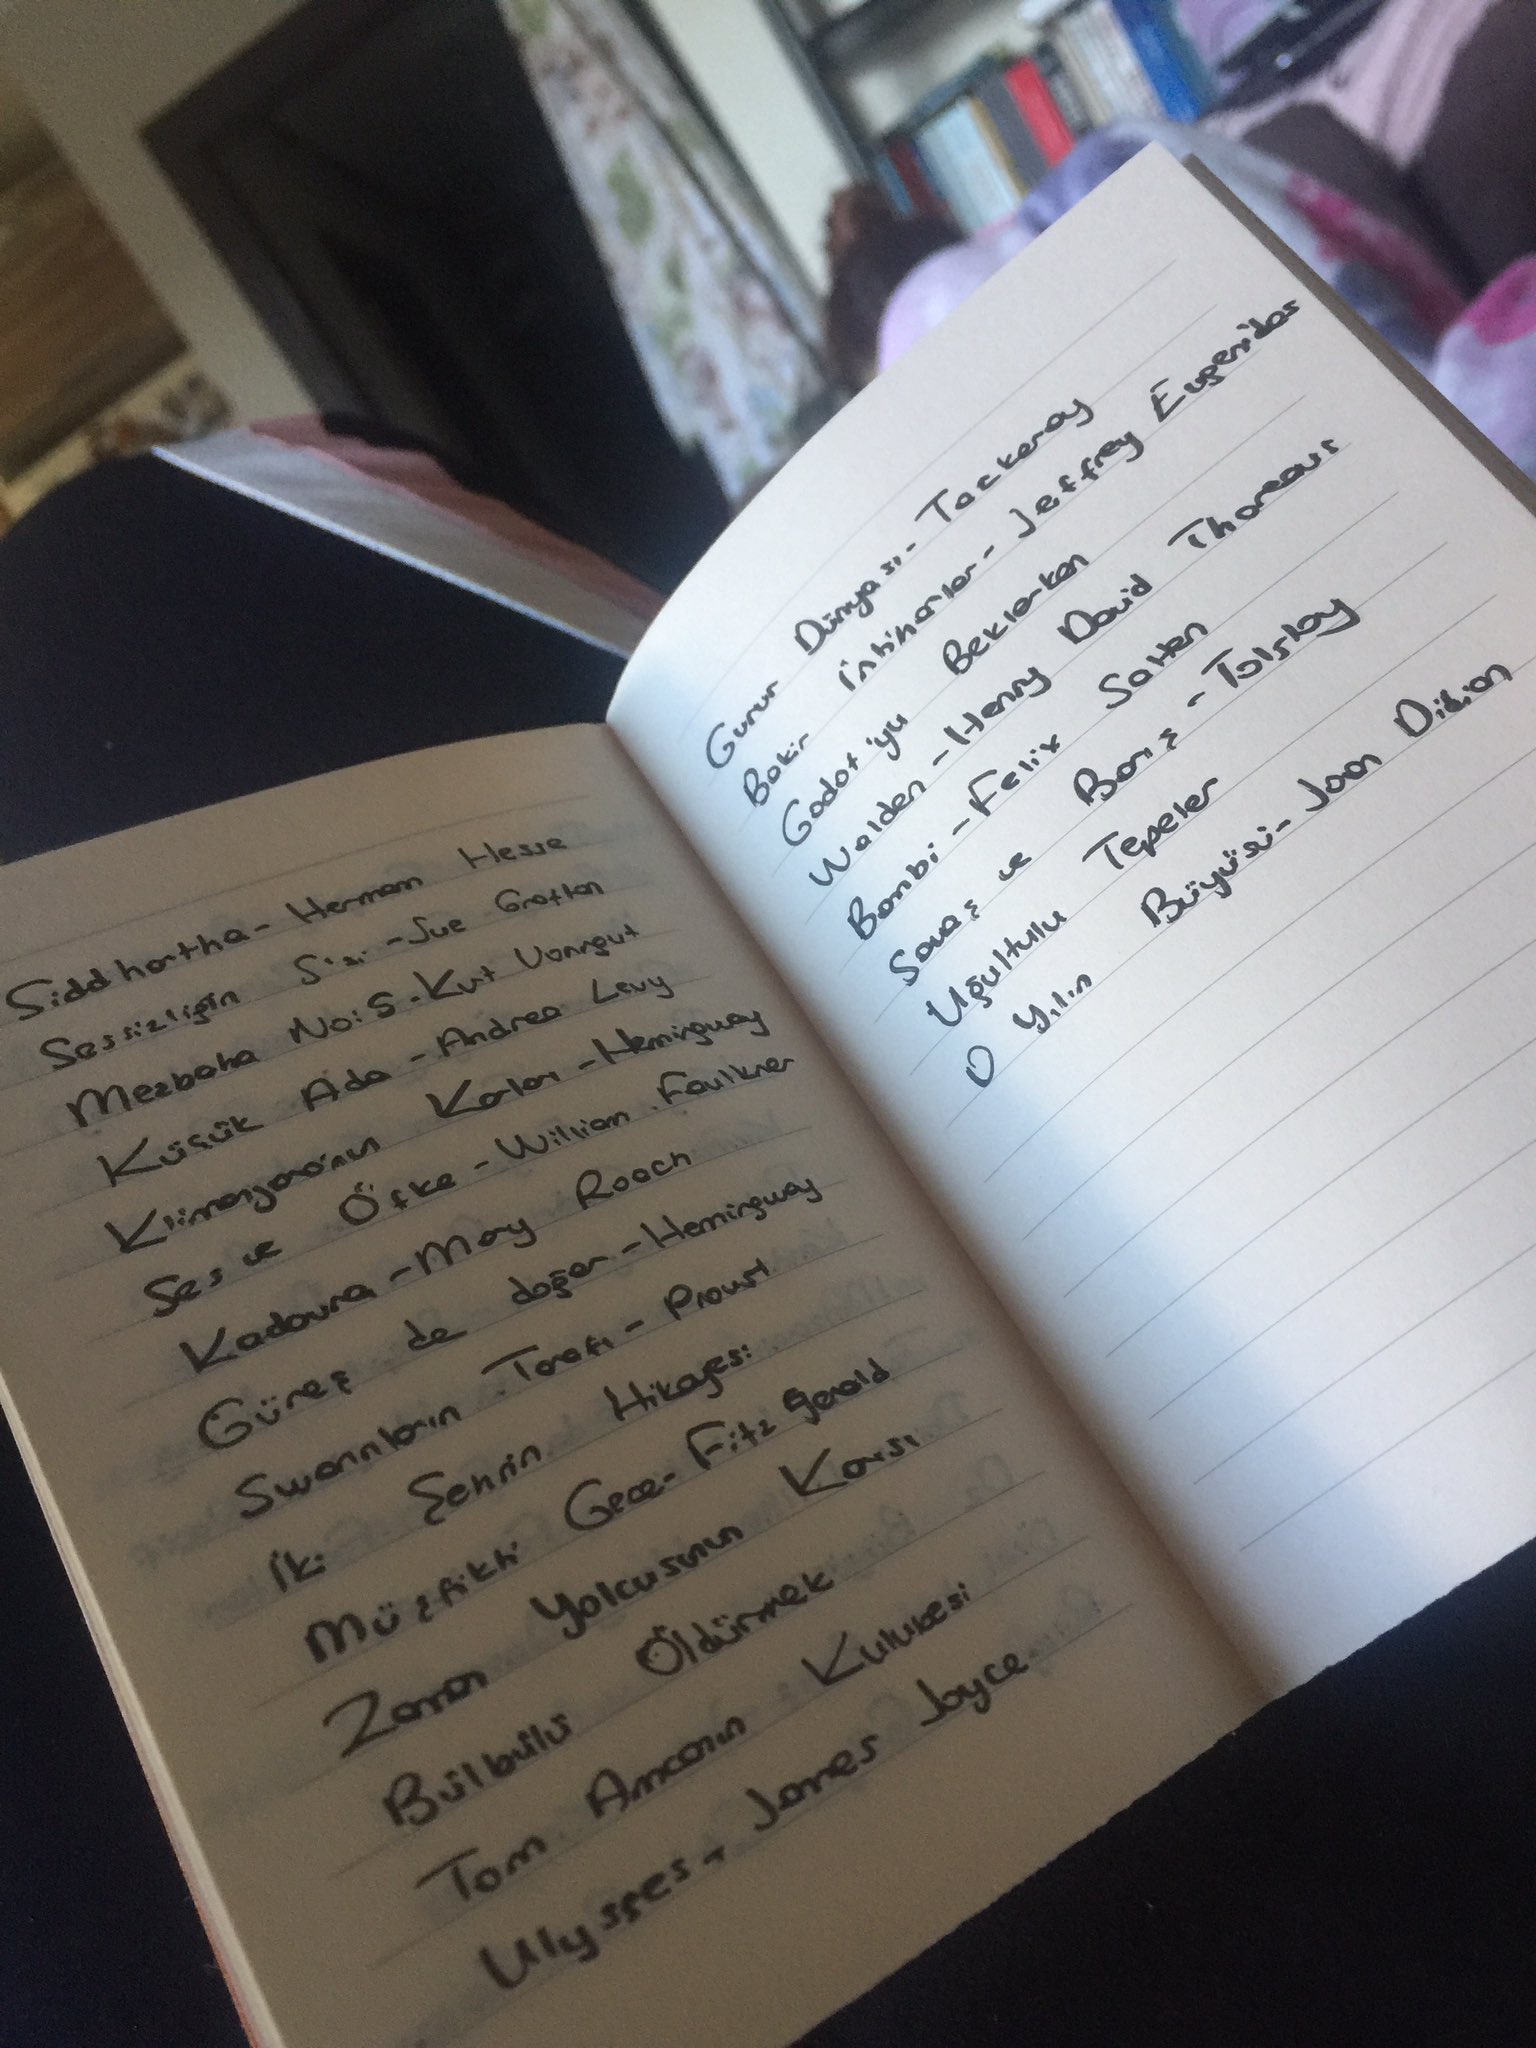 Siddhartha - Herman Hesse
Sessizliğin S'si - Sue Grafton
Mezbaha No:5 - Kurt Vonngut
Küçük Ada - Andrea Levy
Klimanjaro'nun Karları - Hemingway
Ses ve Öfke - Willian Faulkner
Kadavra - Mary Roach
Güneş de doğar - Hemingway
Swannların Tarafı - Proust
İki Şehrin Hikayesi
Müşfikti Gece - Fitzgerald
Zaman Yolcusunun Karısı
Bülbülü Öldürmek
Tom Amcanın Kulubesi
Ulysses - James Joyce
Gurur Dünyası - Tackeray
Bakir İntiharlar - Jeffrey Eugenides
Godot'yu Beklerken
Walden - Henry David Thoreaus
Bambi - Felix Salten
Savaş ve Barış - Tolstoy
Uğultulu Tepeler
O Yılın Büyüsü - Joan Didion